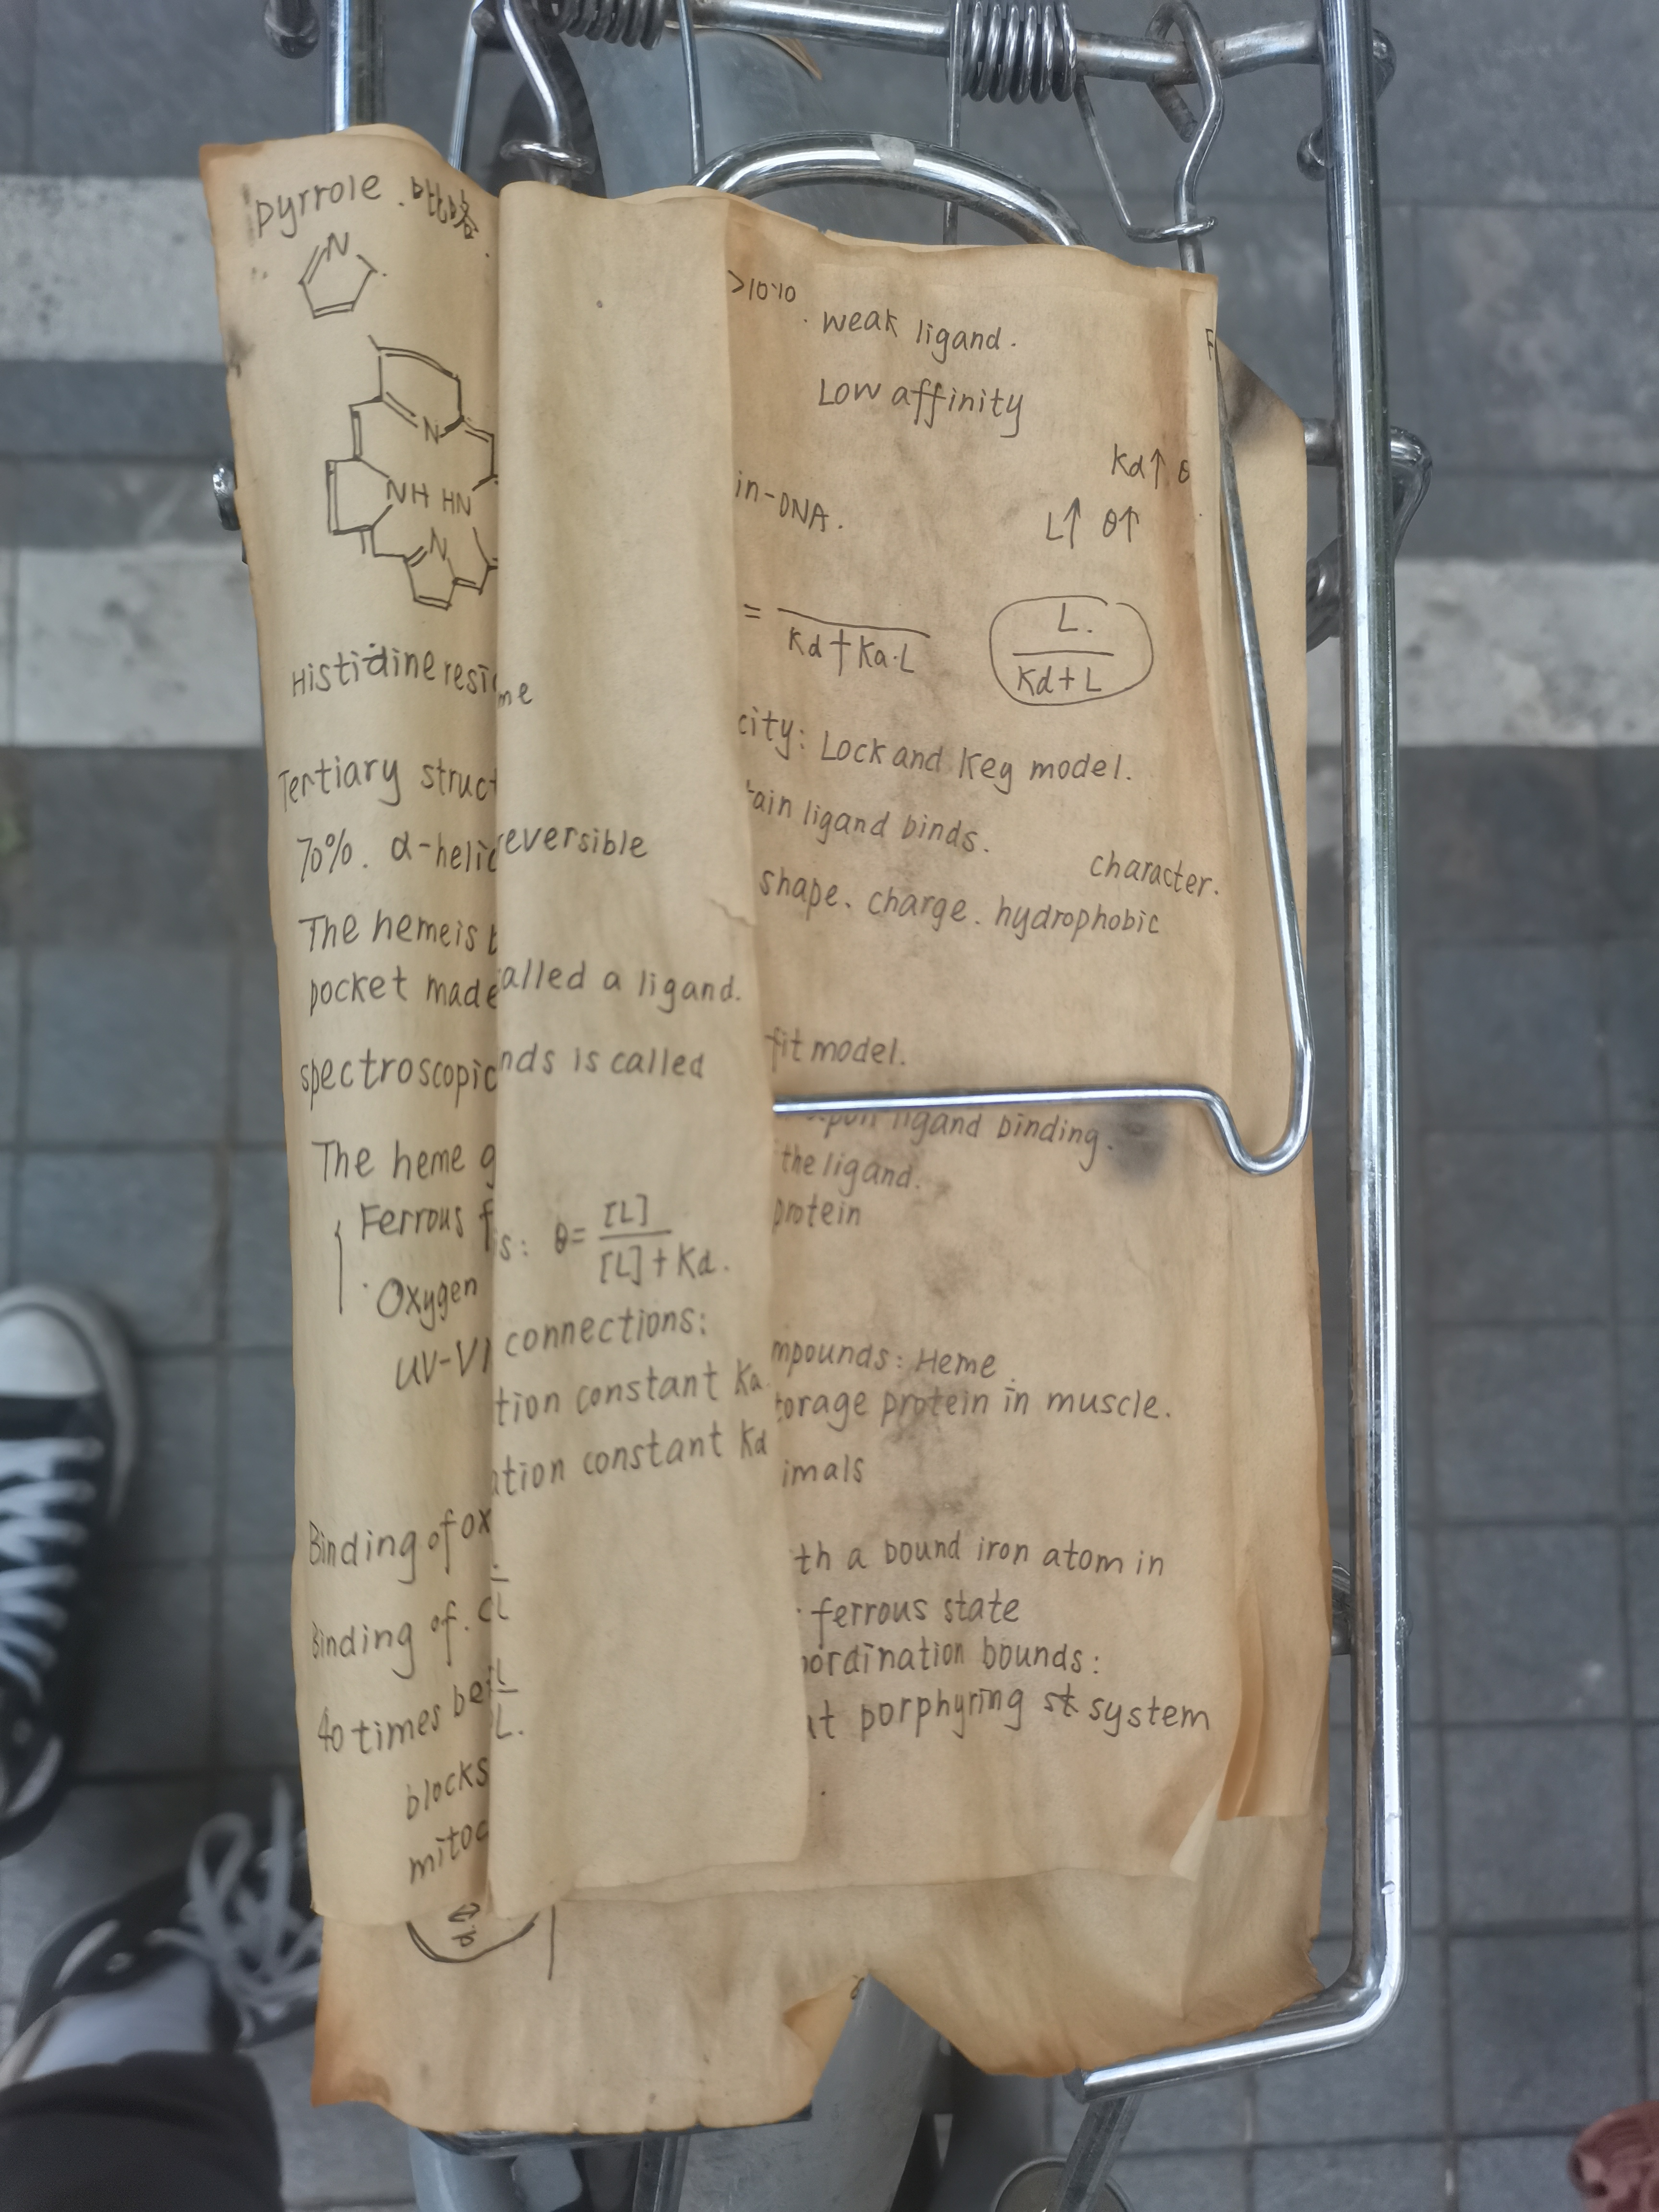 pyrrole. 吡咯
N
N
NH HN
N
Histidine resi
Tertiary struct
70%. α-helic
The heme is b
pocket made
spectroscopic
The heme g
Ferrous f
Oxygen
UV-VI
Binding of ox
Binding of. C
40 times bet
blocks
mitoc
me
reversible
alled a ligand.
nds is called
s: θ= [L] / [L]+Kd.
connections:
tion constant Ka
ation constant Kd
L
L
L.
weak ligand.
Low affinity
Kd↑ θ
in-DNA.
L↑ θ↑
= / Kd+Ka·L
L. / Kd+L
city: Lock and Key model.
tain ligand binds.
character.
shape. charge. hydrophobic
fit model.
upon ligand binding.
the ligand.
protein
mpounds: Heme
torage protein in muscle.
imals
th a bound iron atom in
ferrous state
oordination bounds:
at porphyring st system
F